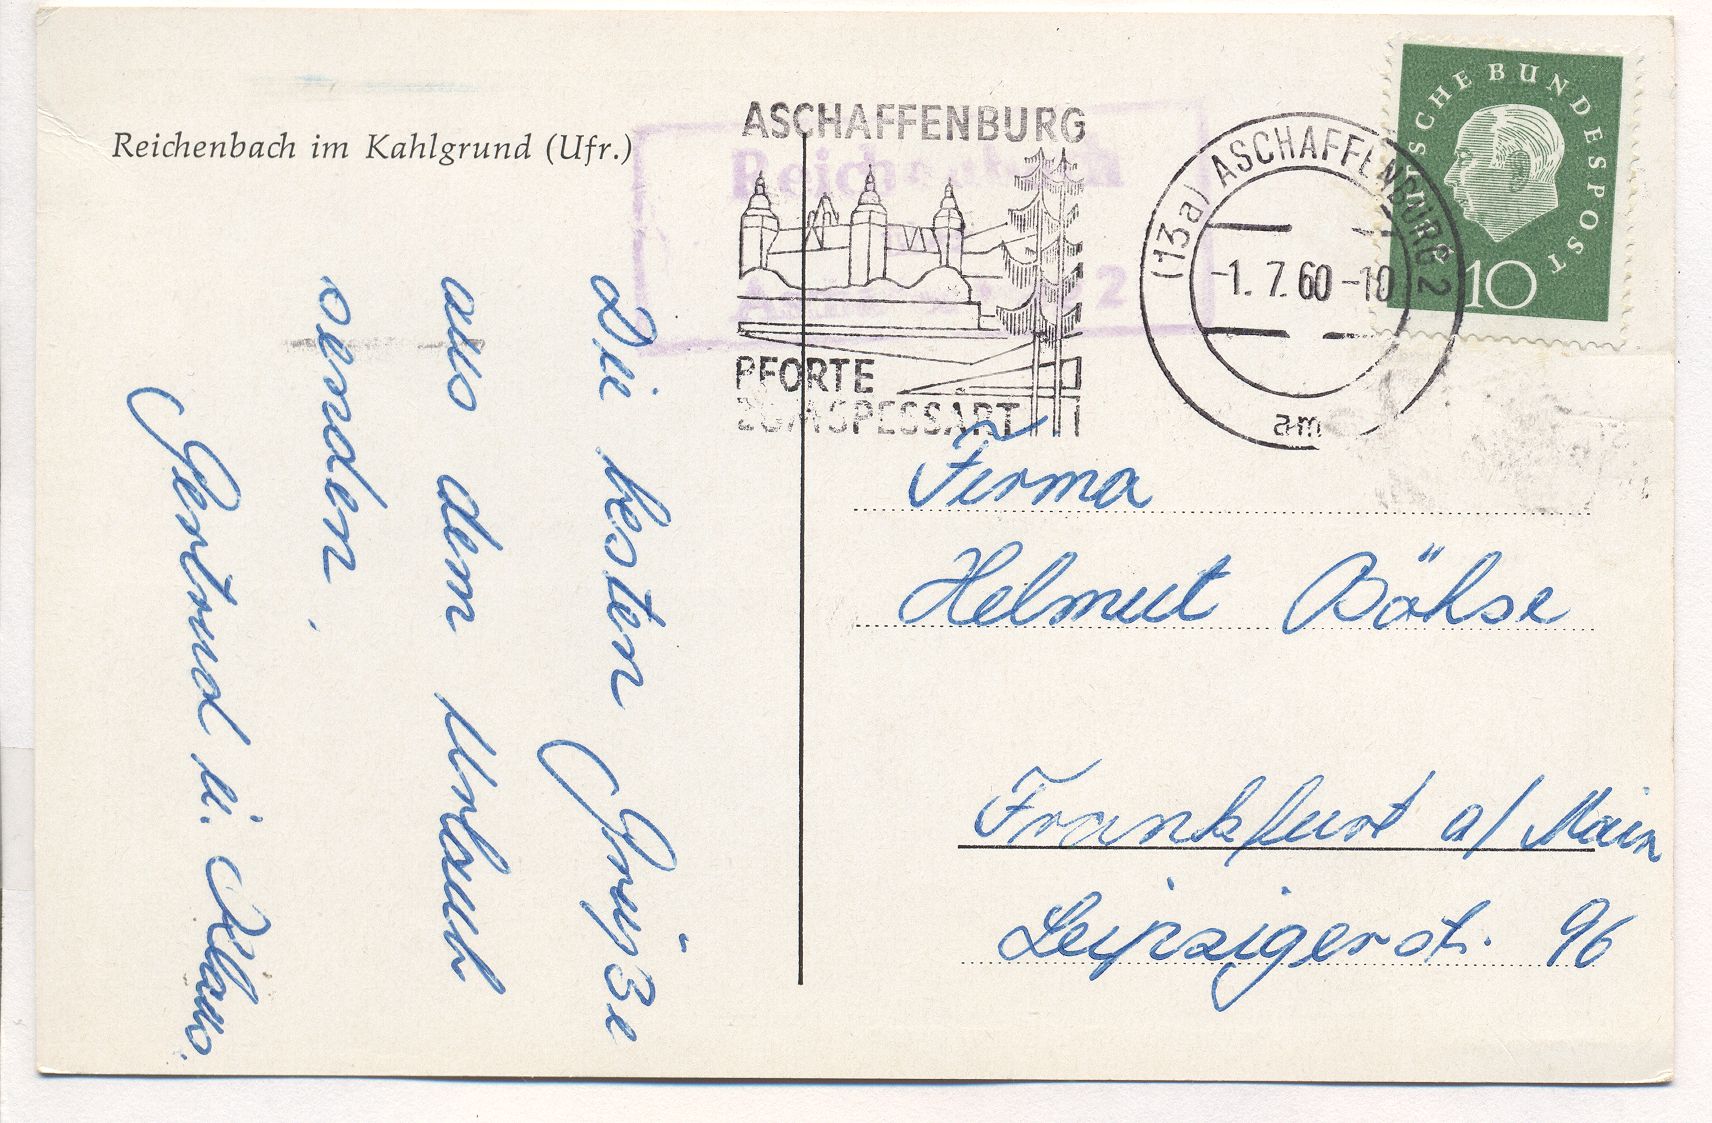 Reichenbach im Kahlgrund (Ufr.)
Die besten Grüße
aus dem Urlaub
senden
Gertrud u. Klaus.
ASCHAFFENBURG
PFORTE
ZUM SPESSART
Reichenbach
2
(13a) ASCHAFFENBURG 2
-1.7.60-10
am
DEUTSCHE BUNDESPOST
10
Firma
Helmut Böhse
Frankfurt a/Main
Leipzigerst. 96